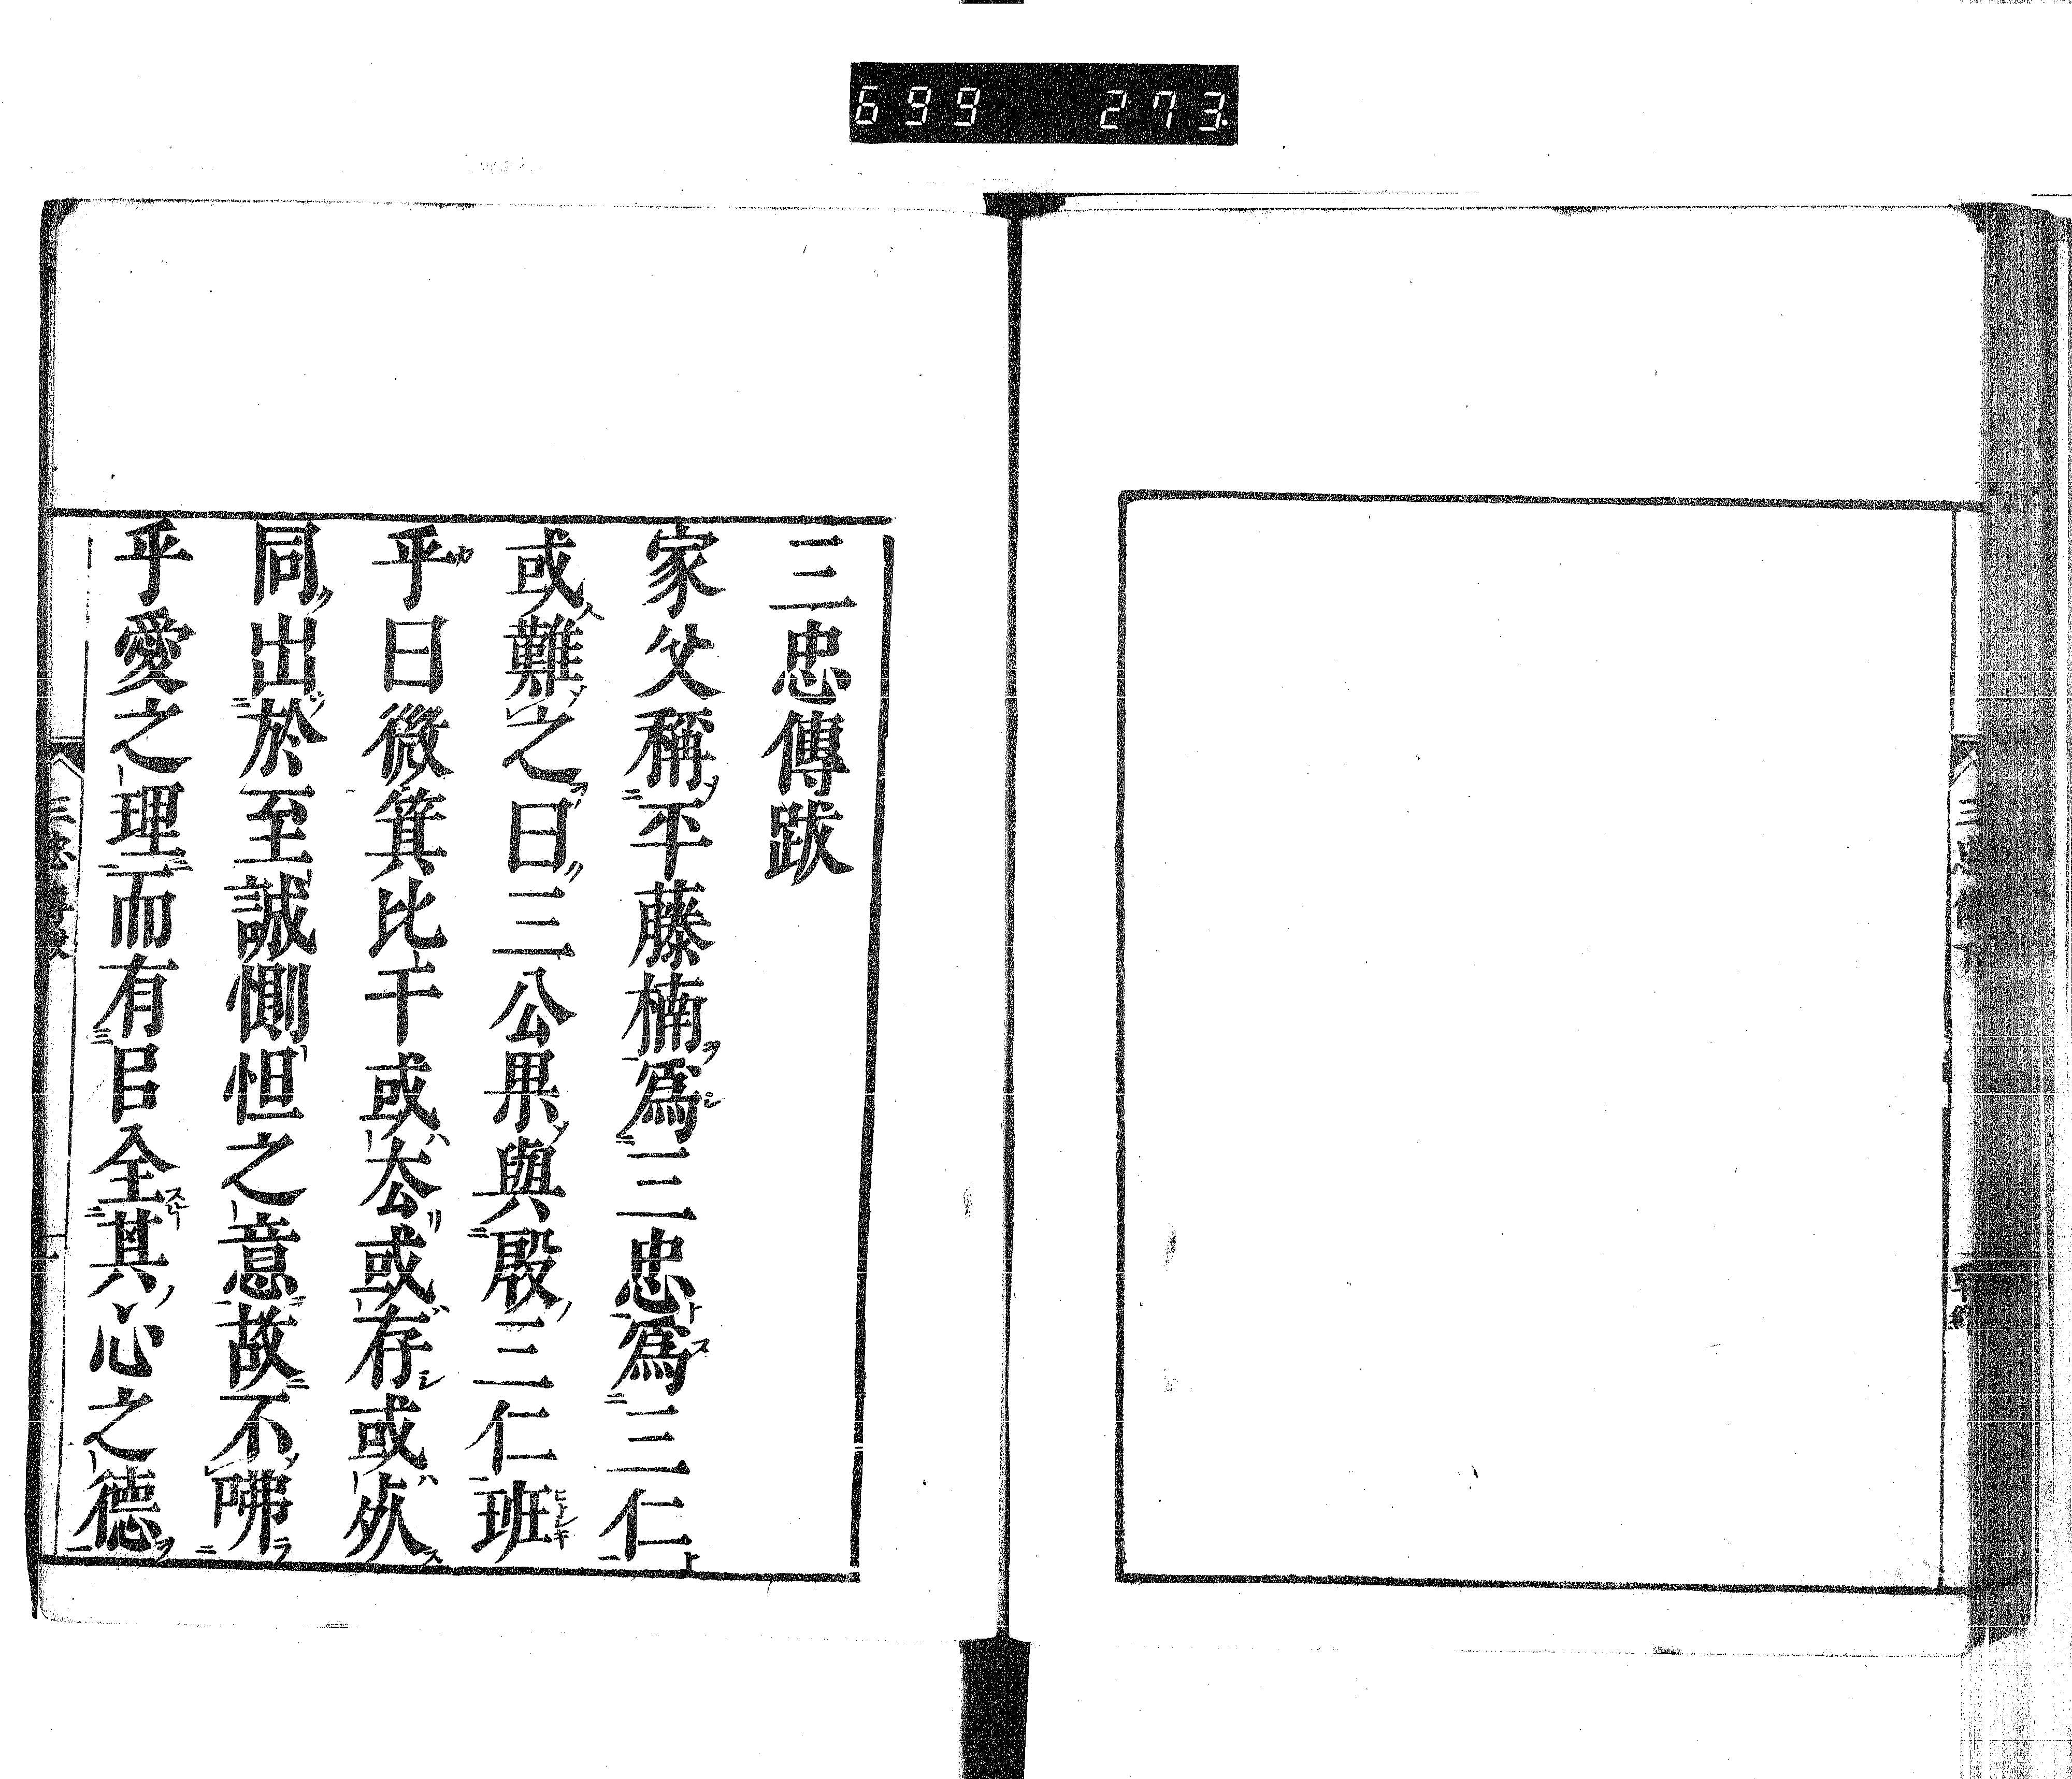 699 273
三忠傳跋
家父稱平藤楠爲三忠爲三仁
或難之曰三公果與殷三仁班
乎曰微箕比干或厺或存或𣦸
同出於至誠惻怛之意故不咈
乎愛之理而有㠯全其心之德
三忠傳跋